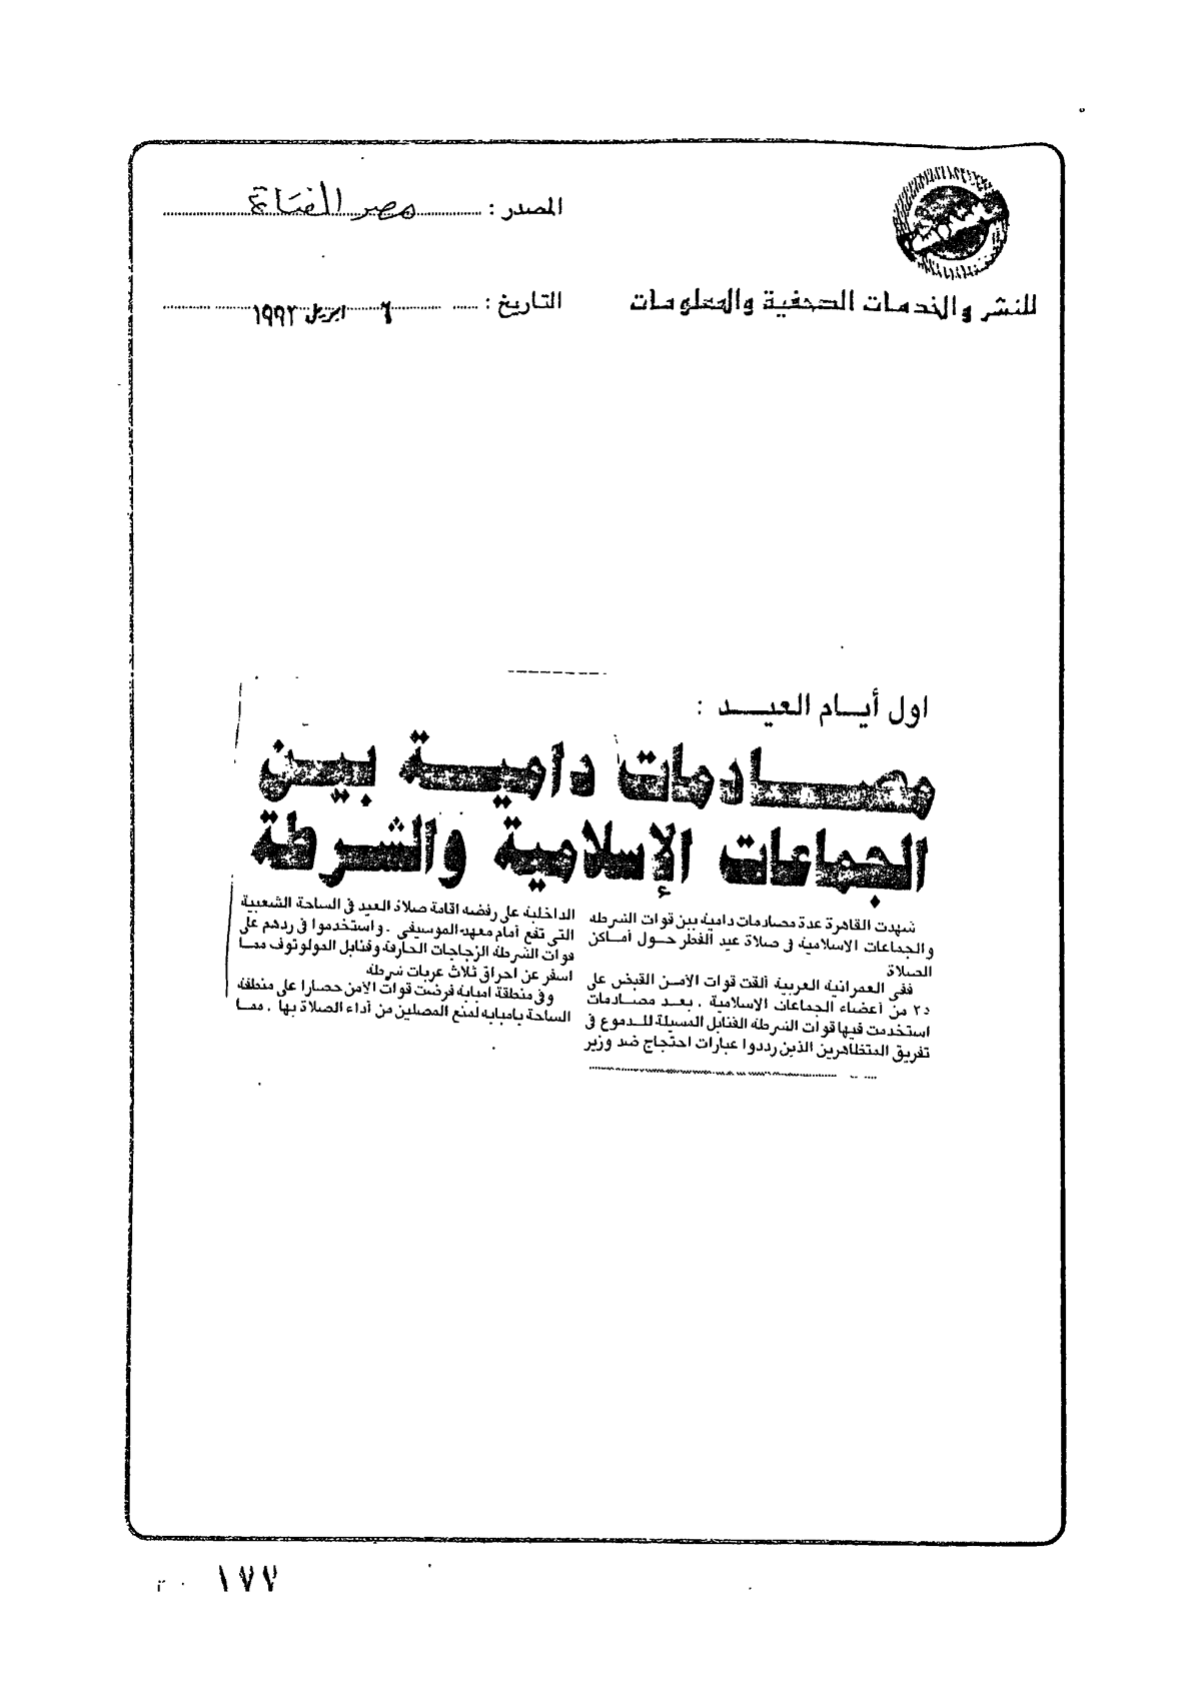 المصدر : مصر الفتاة
للنشر والخدمات الصحفية والمعلومات
التاريخ : ٦ ابريل ١٩٩٢
اول أيـــام العيـــــد :
مصــــادمات داميــــة بيــن
الجماعات الإسلامية والشـرطة
شهدت القاهرة عدة مصادمات دامية بين قوات الشرطه
والجماعات الاسلامية فى صلاة عيد الفطر حـول أمـاكن
الصلاة
ففى العمرانية العربية ألقت قوات الأمـن القبض على
من أعضاء الجماعات الإسلامية . بعـد مصـادمات
استخدمت فيها قوات الشرطه القنابل المسيلة للـدموع فى
تفريق المتظاهرين الذين رددوا عبارات احتجاج ضد وزير
الداخلية على رفضه اقامة صلاة العيد فى الساحة الشعبية
التى تقع أمام معهد الموسيقى . واستخدموا فى ردهم على
قوات الشرطه الزجاجات الحارقة وقنابل المولوتوف ممـا
اسفر عن احراق ثلاث عربات شرطة
وفى منطقة امبابة فرضت قوات الأمن حصارا على منطقة
الساحة بامبابه لمنع المصلين من أداء الصلاة بها . ممـا
١٧٧